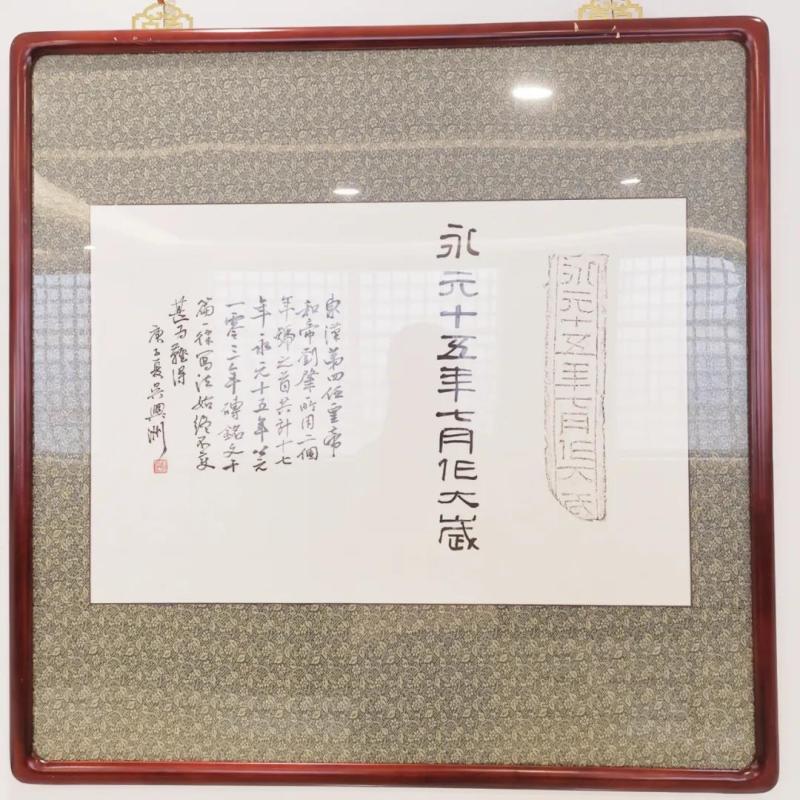 永元十五年七月作大
永元十五年七月作大歲
東漢第四任皇帝
和帝劉肇所用二個
年號之首共計十七
年永元十五年公元
一零三年磚銘文干
篇一律寫法始終不变
甚为難得
庚子夏吳興洲